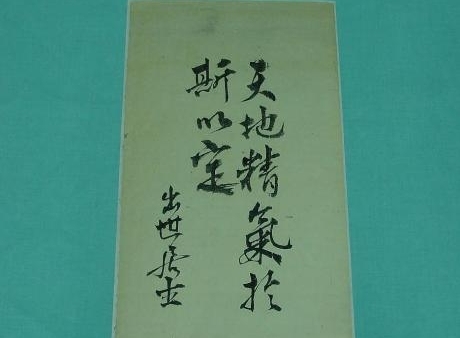 天地精氣於
斯以定
出世居士